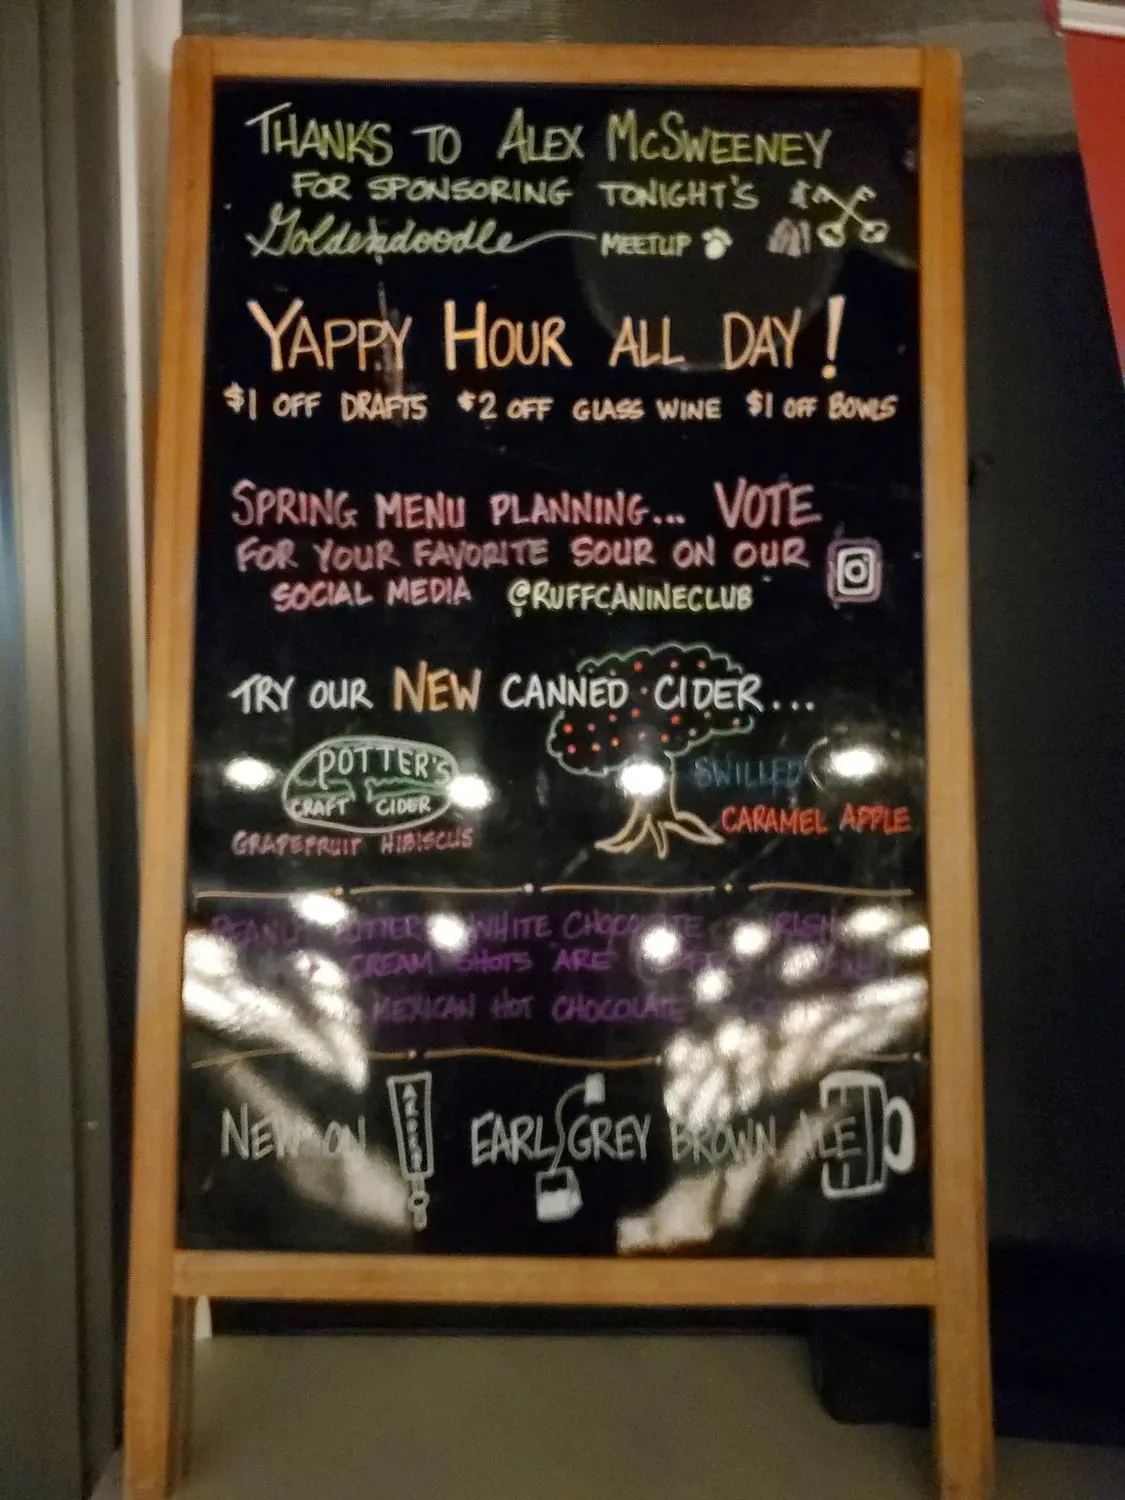 THANKS TO ALEX MCSWEENEY
FOR SPONSORING TONIGHT'S
Goldendoodle MEETUP
YAPPY HOUR ALL DAY!
$1 OFF DRAFTS $2 OFF GLASS WINE $1 OFF BOWLS
SPRING MENU PLANNING... VOTE
FOR YOUR FAVORITE SOUR ON OUR
SOCIAL MEDIA @RUFFCANINECLUB
TRY OUR NEW CANNED CIDER...
POTTER'S
CRAFT CIDER
GRAPEFRUIT HIBISCUS
SWILLED
CARAMEL APPLE
PEANUT BUTTER WHITE CHOCOLATE IRISH
CREAM SHOTS ARE
MEXICAN HOT CHOCOLATE
NEW ON
EARL GREY BROWN ALE